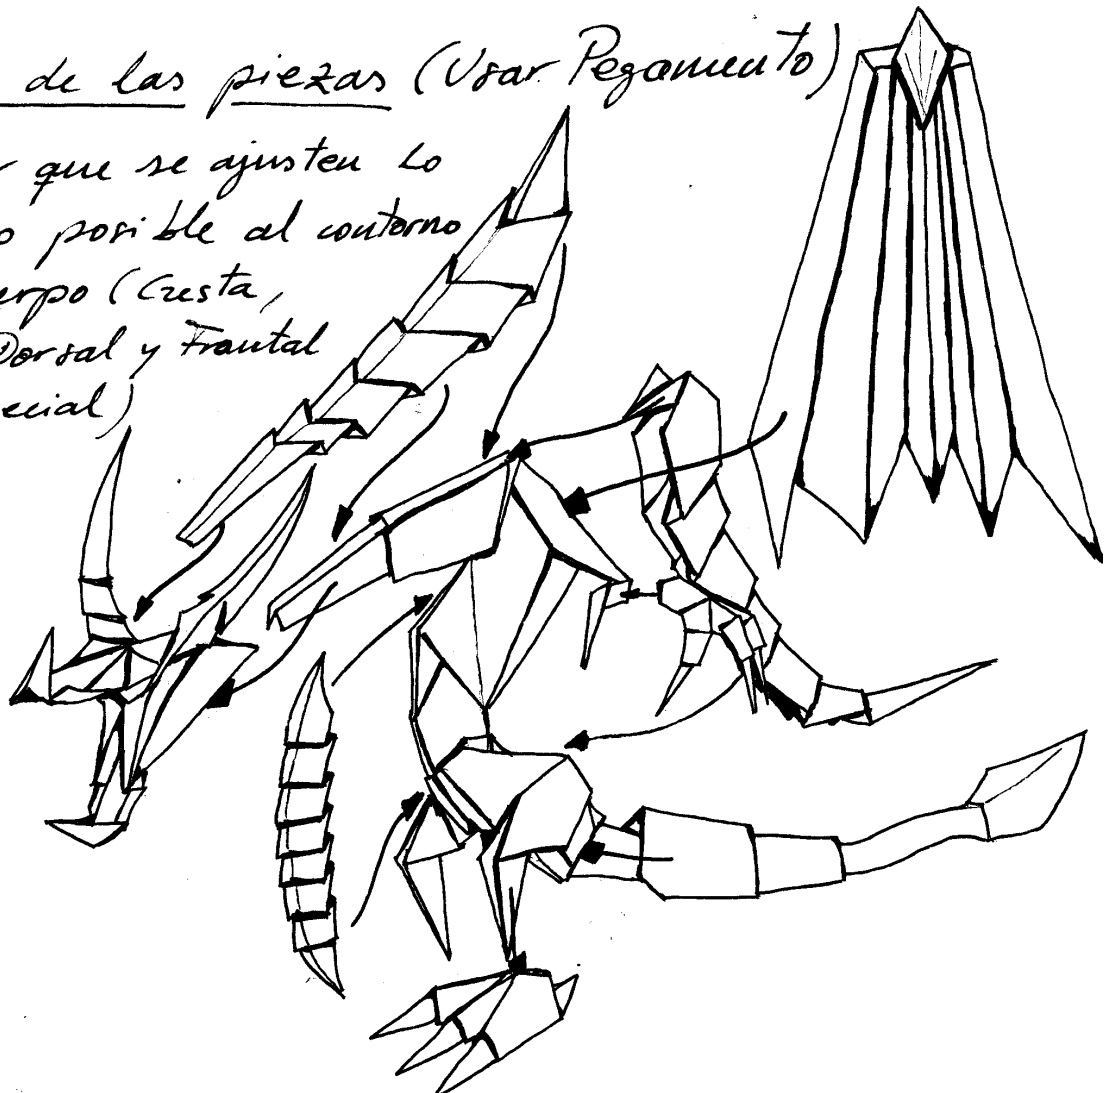 de las piezas (Usar Pegamento)
que se ajusten lo
posible al contorno
(Cresta,
Dorsal y Frontal